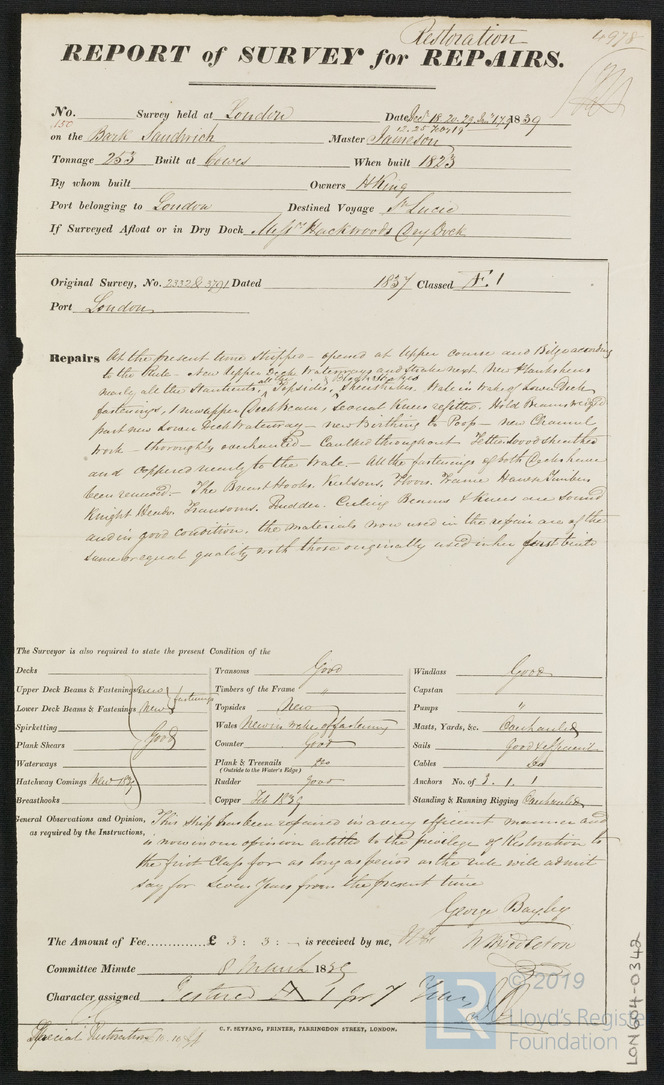 Restoration
4978
REPORT of SURVEY for REPAIRS.
No. 150 Survey held at London Date Decr 18. 20. 29. Jany 17 1839
12. 25 Feby 19
on the Bark Sandwich Master Jameson
Tonnage 253 Built at Cowes When built 1823
By whom built Owners H King
Port belonging to London Destined Voyage St Lucie
If Surveyed Afloat or in Dry Dock Messrs Hackwoods Dry Dock
Original Survey, No. 2332 & 3791 Dated 1837 Classed Æ.1
Port London
Repairs At the present time stripped - opened at upper course and Bilge according
to the Rule - New Upper Deck Waterways and Strake next New Plankshears
nearly all the Stantients, all the Topsides, & Sheerstrakes. Wale in wake of Lower Deck
fastenings, 1 new upper Deck Beam, Several Knees refitted. Hold Beams
part new Lower Deck Waterway - new Birthing to Poop - new Channel
work - thoroughly overhauled - Caulked throughout - Felted Wood sheathed
and coppered nearly to the Wale - All the fastenings of both Decks have
been renewed - The Breast Hooks, Keelsons, Floors, Frame Hawse Timbers
Knight Heads Transoms, Rudder, Ceiling Beams & Knees are Sound
and in good condition. the materials now used in the repair are of the
same or equal quality with those originally used in her first built
The Surveyor is also required to state the present Condition of the
Decks
Upper Deck Beams & Fastenings new fastenings
Lower Deck Beams & Fastenings New
Spirketting
Plank Shears Good
Waterways
Hatchway Comings New
Breasthooks
Transoms Good
Timbers of the Frame "
Topsides New
Wales New in wake of fastening
Counter Good
Plank & Treenails do
(Outside to the Water's Edge)
Rudder good
Copper Feb 1839
Windlass Good
Capstan
Pumps "
Masts, Yards, &c. Overhauled
Sails Good & efficient
Cables do
Anchors No. of 3. 1. 1
Standing & Running Rigging Overhauled
General Observations and Opinion,
as required by the Instructions,
This Ship has been repaired in a very efficient manner and
is now in our opinion entitled to the privilege of Restoration to
the first Class for as long a period as the rule will admit
say for Seven Years from the present time
George Bayley
The Amount of Fee............. £ 3 : 3 : - is received by me,
W Middleton
Committee Minute 8 March 1839
Character assigned Restored A 1 for 7 Years
Special Restoration
C. F. SEYFANG, PRINTER, FARRINGDON STREET, LONDON.
LR
© 2019
Lloyd's Register
Foundation
LON 604-0342